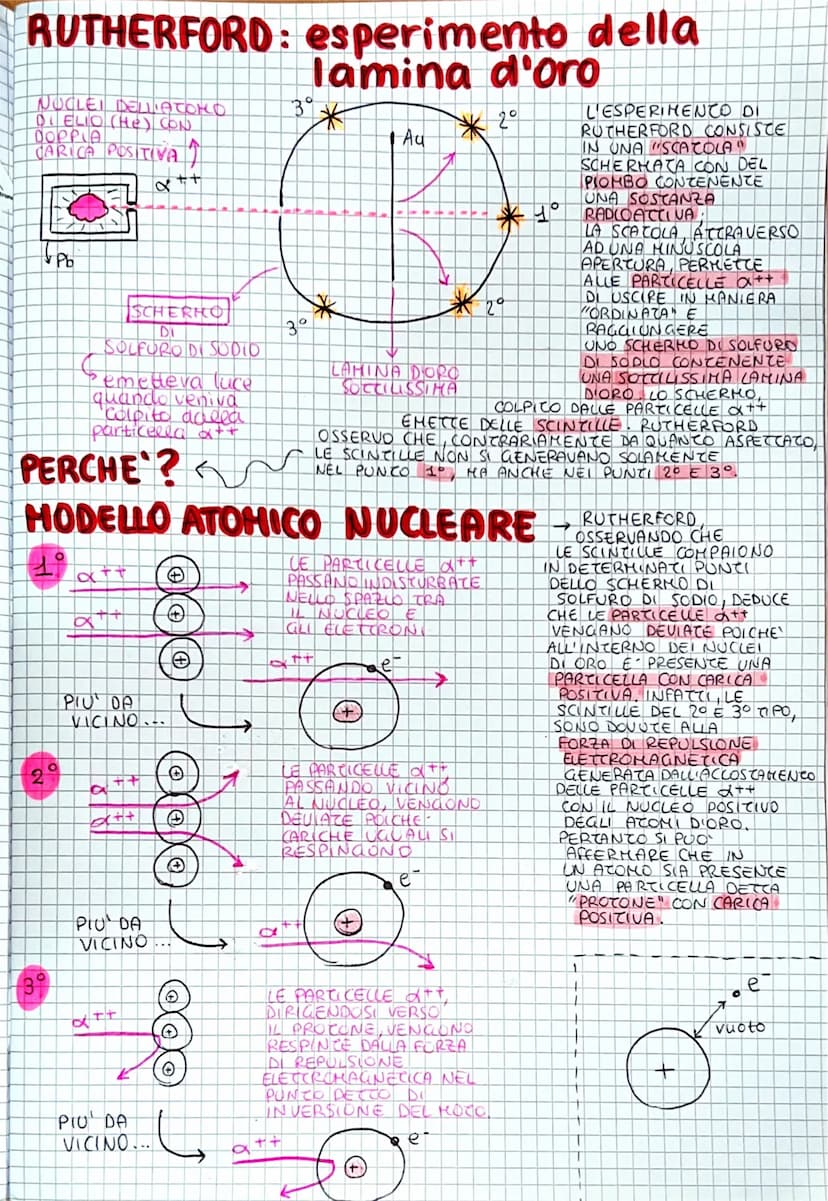 RUTHERFORD: esperimento della
lamina d'oro
NUCLEI DELL'ATOMO
DI ELIO (He) CON
DOPPIA
CARICA POSITIVA
α++
Pb
3°
Au
2°
1°
2°
3°
SCHERMO
DI
SOLFURO DI SODIO
emetteva luce
quando veniva
colpito dalla
particella α++
LAMINA D'ORO
SOTTILISSIMA
L'ESPERIMENTO DI
RUTHERFORD CONSISTE
IN UNA "SCATOLA"
SCHERMATA CON DEL
PIOMBO CONTENENTE
UNA SOSTANZA
RADIOATTIVA;
LA SCATOLA, ATTRAVERSO
AD UNA MINUSCOLA
APERTURA, PERMETTE
ALLE PARTICELLE α++
DI USCIRE IN MANIERA
"ORDINATA" E
RAGGIUNGERE
UNO SCHERMO DI SOLFURO
DI SODIO CONTENENTE
UNA SOTTILISSIMA LAMINA
D'ORO. LO SCHERMO,
COLPITO DALLE PARTICELLE α++
EMETTE DELLE SCINTILLE. RUTHERFORD
OSSERVÒ CHE, CONTRARIAMENTE DA QUANTO ASPETTATO,
LE SCINTILLE NON SI GENERAVANO SOLAMENTE
NEL PUNTO 1°, MA ANCHE NEI PUNTI 2° E 3°.
PERCHE'?
MODELLO ATOMICO NUCLEARE → RUTHERFORD,
OSSERVANDO CHE
LE SCINTILLE COMPAIONO
IN DETERMINATI PUNTI
DELLO SCHERMO DI
SOLFURO DI SODIO, DEDUCE
CHE LE PARTICELLE α++
VENGANO DEVIATE POICHE'
ALL'INTERNO DEI NUCLEI
DI ORO E' PRESENTE UNA
PARTICELLA CON CARICA
POSITIVA. INFATTI, LE
SCINTILLE DEL 2° E 3° TIPO,
SONO DOVUTE ALLA
FORZA DI REPULSIONE
ELETTROMAGNETICA
GENERATA DALL'ACCOSTAMENTO
DELLE PARTICELLE α++
CON IL NUCLEO POSITIVO
DEGLI ATOMI D'ORO.
PERTANTO SI PUO'
AFFERMARE CHE IN
UN ATOMO SIA PRESENTE
UNA PARTICELLA DETTA
"PROTONE" CON CARICA
POSITIVA.
1°
α++
α++
+
+
+
LE PARTICELLE α++
PASSANO INDISTURBATE
NELLO SPAZIO TRA
IL NUCLEO E
GLI ELETTRONI
PIU' DA
VICINO...
α++
e-
+
2°
α++
α++
+
+
+
LE PARTICELLE α++
PASSANDO VICINO
AL NUCLEO, VENGONO
DEVIATE POICHE'
CARICHE UGUALI SI
RESPINGONO
PIU' DA
VICINO...
α++
e-
+
3°
α++
+
+
+
LE PARTICELLE α++,
DIRIGENDOSI VERSO
IL PROTONE, VENGONO
RESPINTE DALLA FORZA
DI REPULSIONE
ELETTROMAGNETICA NEL
PUNTO DETTO DI
INVERSIONE DEL MOTO.
PIU' DA
VICINO...
α++
e-
+
e-
vuoto
+